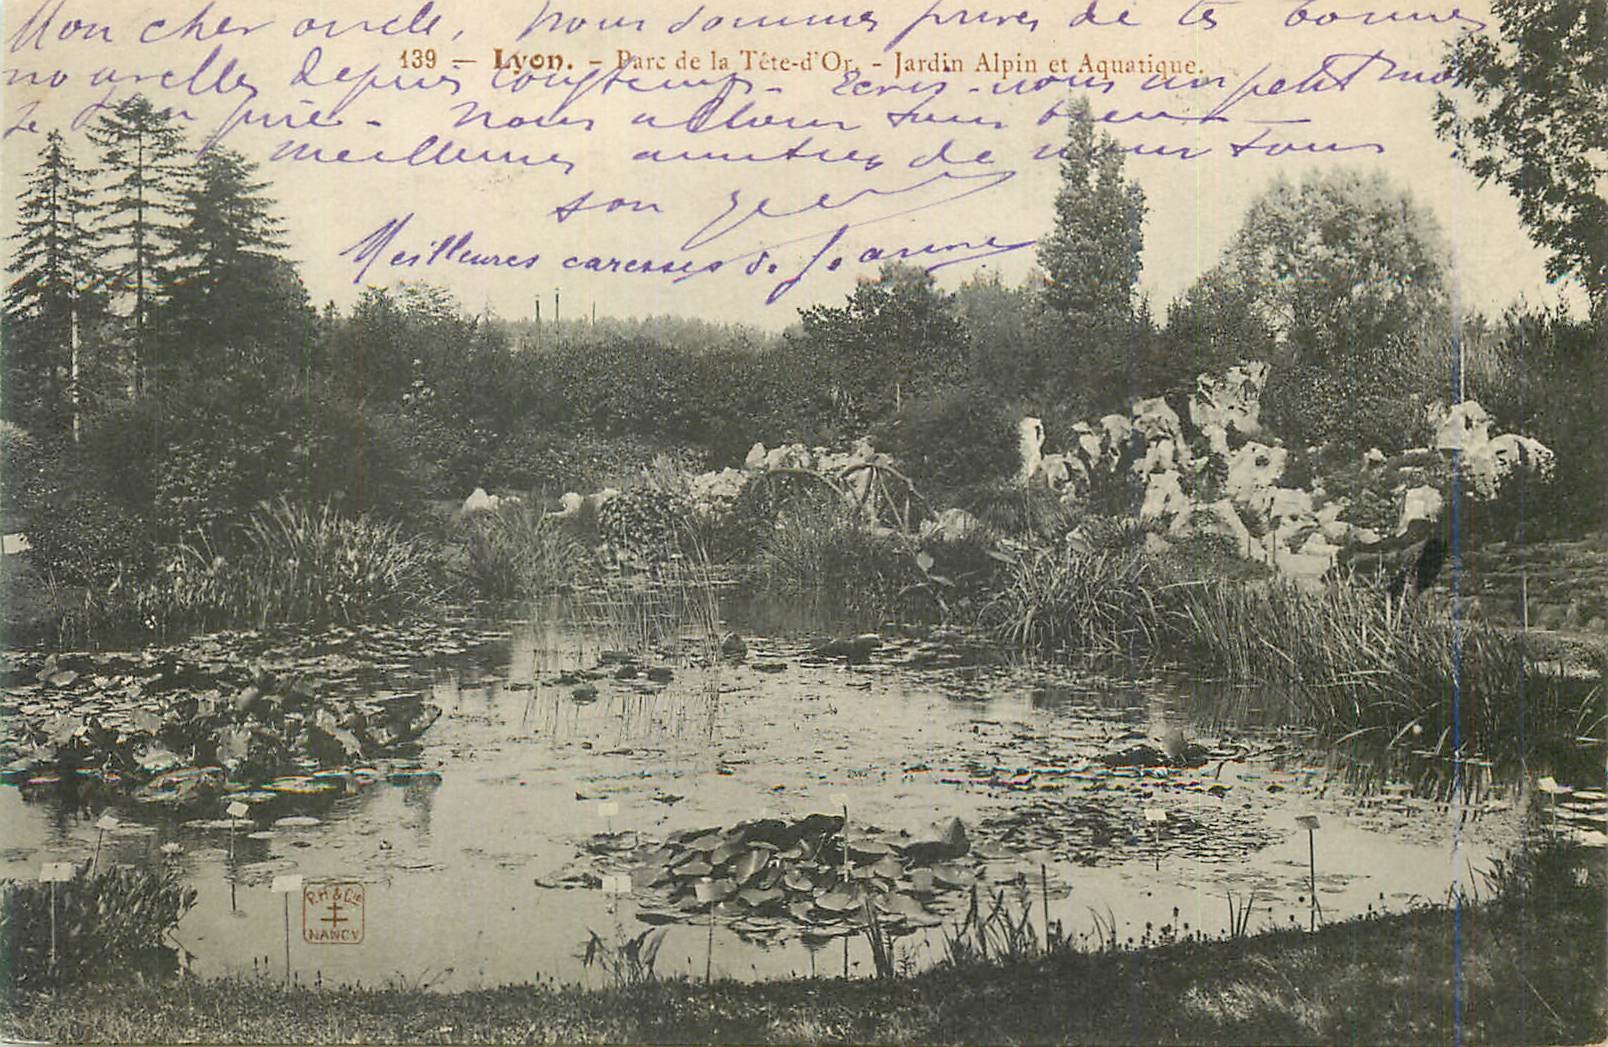 Mon cher oncle, nous sommes privés de tes bonnes
139 - Lyon. - Parc de la Tête-d'Or. - Jardin Alpin et Aquatique.
nouvelles depuis longtemps. Ecris-nous un petit mot
je t'en prie. Nous allons tous bien
meilleures amitiés de nous tous
ton
Meilleures caresses de Jeanne
P.H & Cie
NANCY